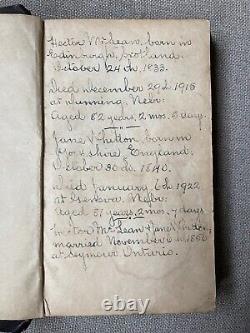 Hector McLean, born in
Edinburgh, Scotland.
October 24th, 1833.
Died December 29th 1915
at Dunning, Nebr.
Aged 82 years, 2 mos. 5 days.
Jane Hutton born in
Yorkshire England.
October 30th. 1840.
Died January 6th 1922
at Geneva, Nebr.
Aged 81 years, 2 mos. 7 days
Hector McLean & Jane Hutton
married November
at Seymour Ontario.
worthpoint